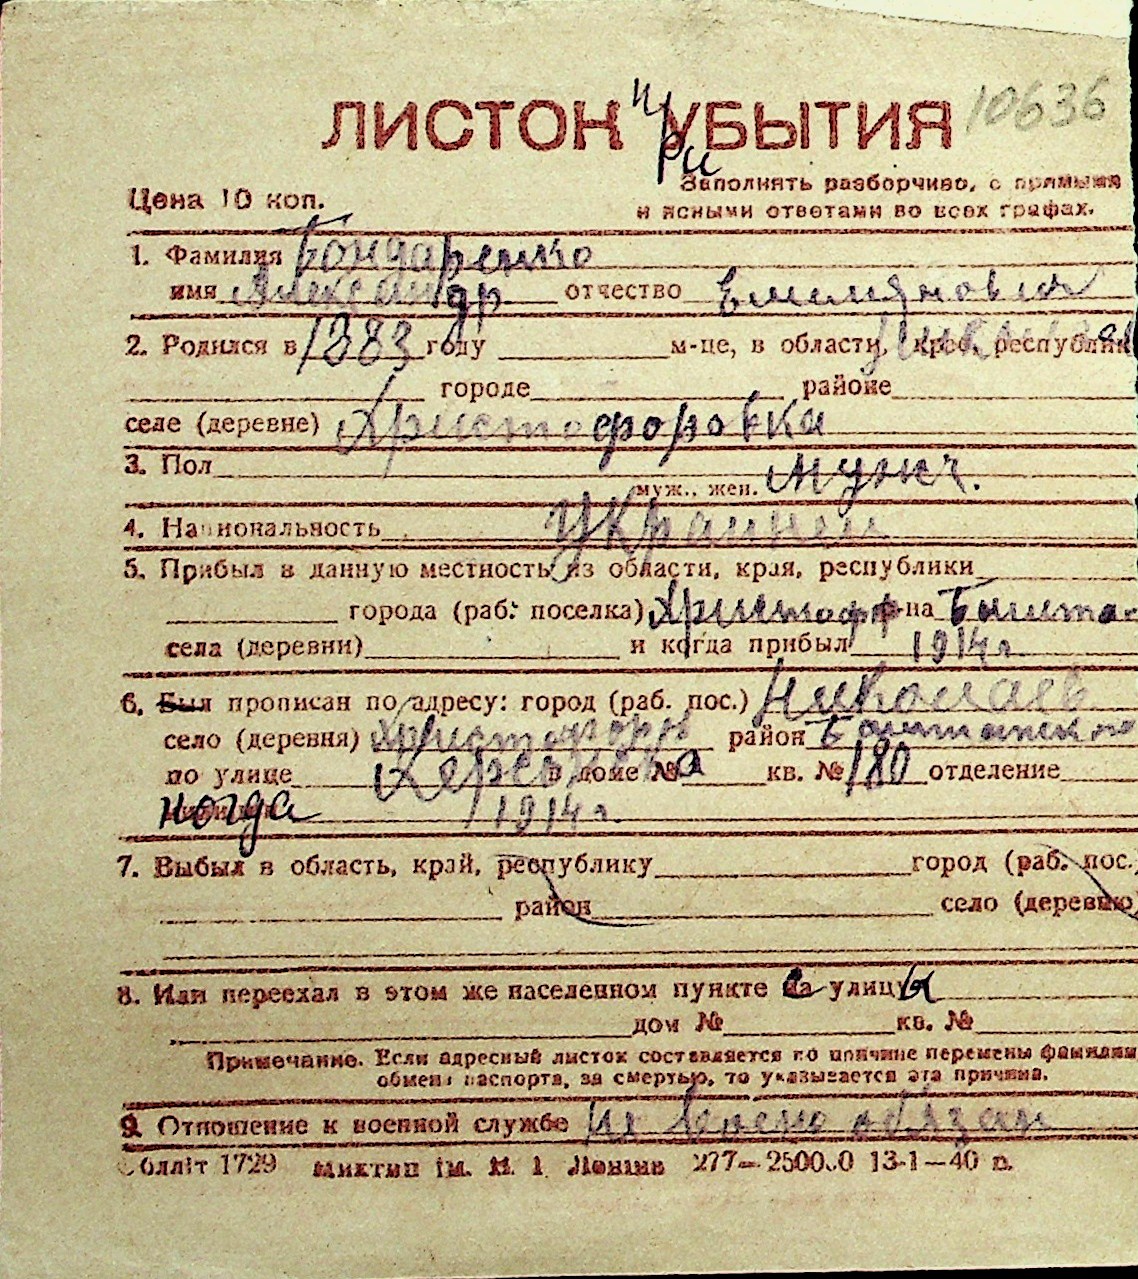 ЛИСТОН УБЫТИЯ при 10636
Цена 10 коп.
Заполнять разборчиво, с прямыми
и ясными ответами во всех графах.
1. Фамилия Бондаренко
имя Александр отчество Емельянович
2. Родился в 1883 году м-це, в области, крае, республик
городе районе
селе (деревне) Христофоровка
3. Пол
муж., жен. мужч.
4. Национальность Украинец
5. Прибыл в данную местность из области, края, республики
города (раб. поселка) Христофор р-на Башта-
села (деревни) и когда прибыл 1914 г.
6. Был прописан по адресу: город (раб. пос.) Николаев
село (деревня) Христофоров район Баштанского
по улице Херсонска в доме № кв. № 180 отделение
когда 1914 г.
7. Выбыл в область, край, республику город (раб. пос.)
район село (деревню)
8. Или переехал в этом же населенном пункте с улицы
дом № кв. №
Примечание. Если адресный листок составляется по причине перемены фамилии
обмена паспорта, за смертью, то указывается эта причина.
9. Отношение к военной службе не военно обязан
1729 277—2500.0 13-1—40 р.